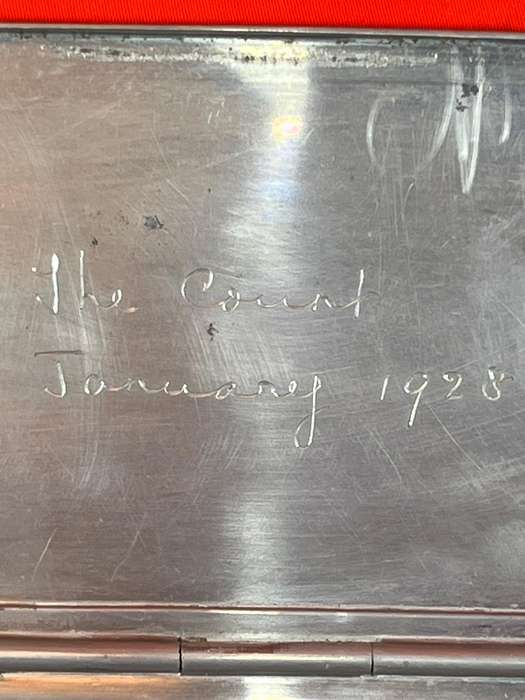 The Count
January 1928